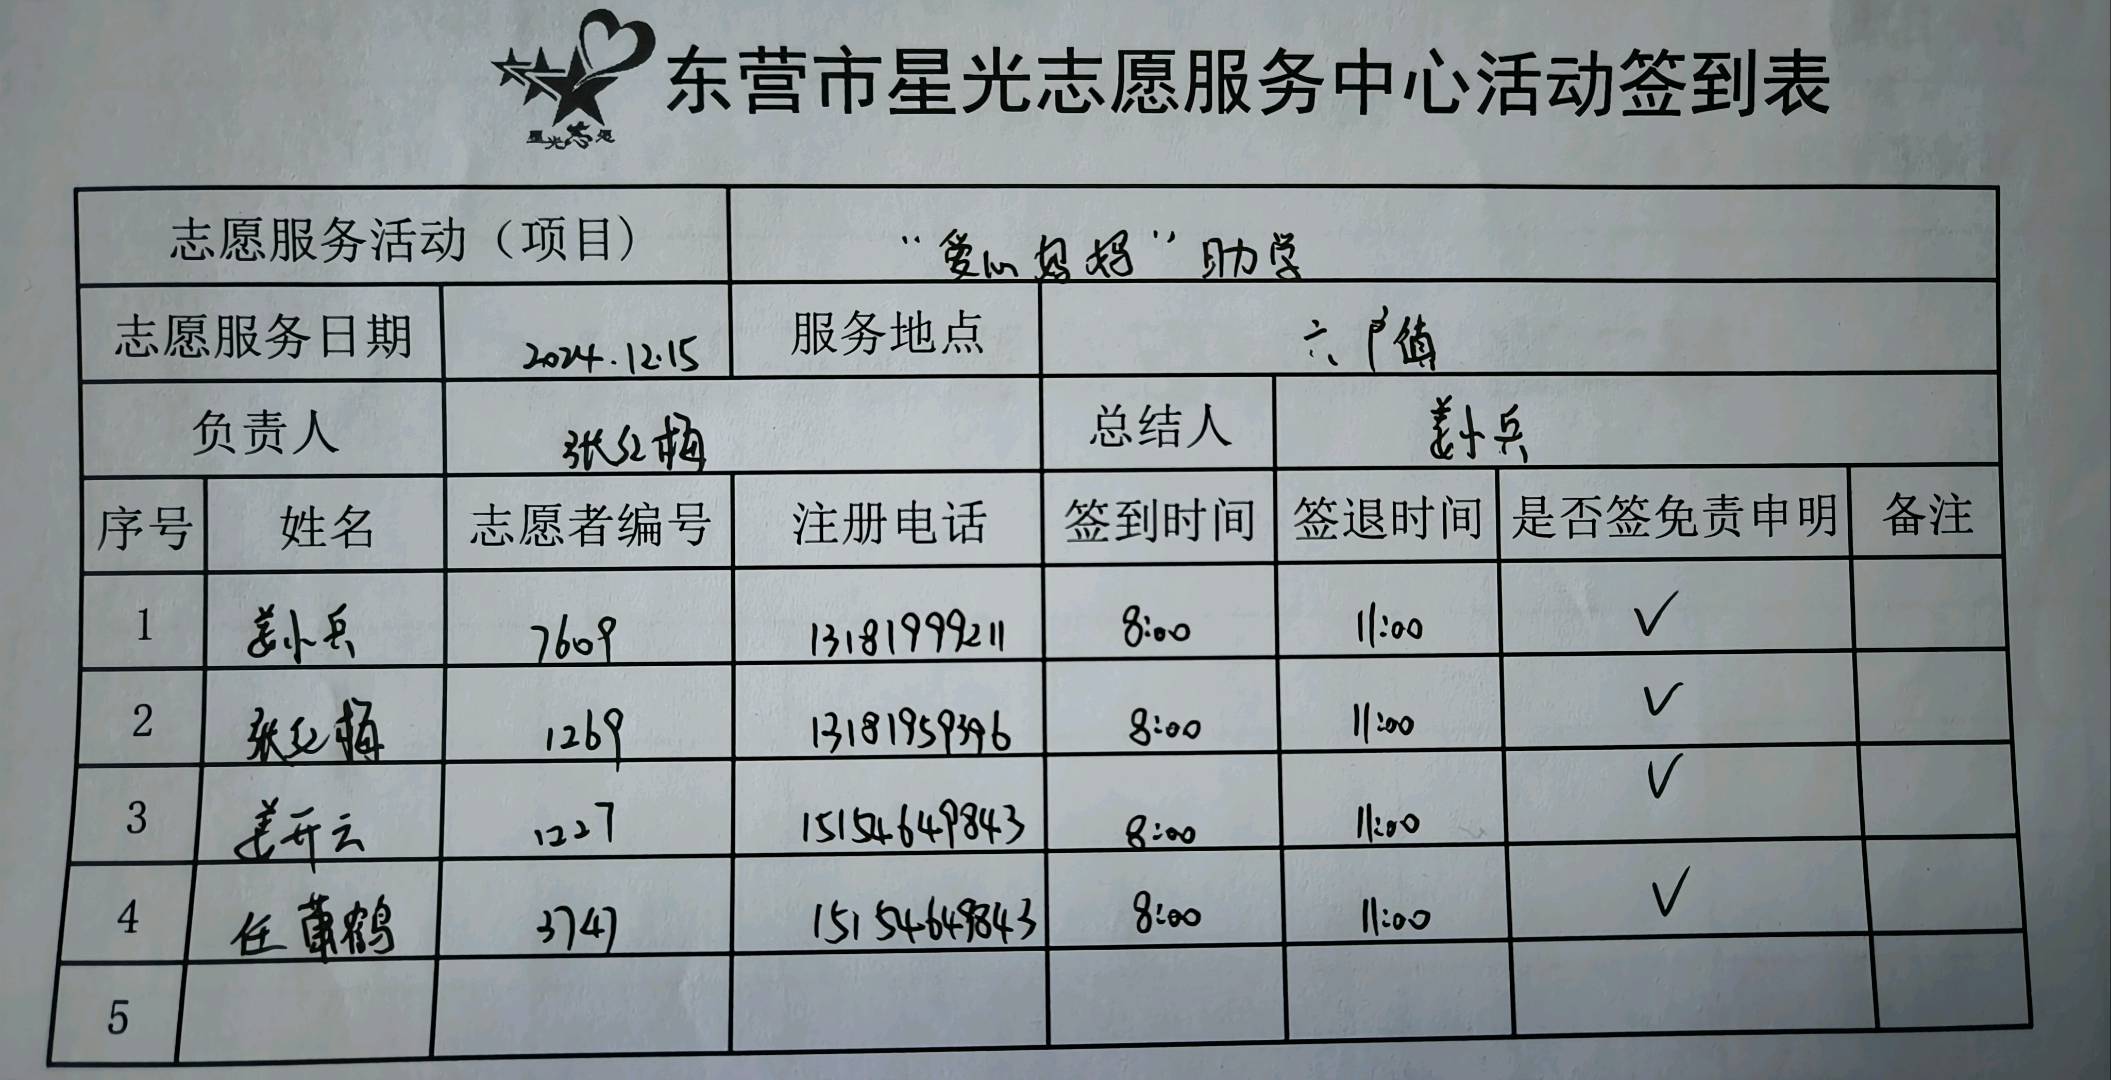 星光志愿
东营市星光志愿服务中心活动签到表
志愿服务活动（项目） “爱心妈妈”助学
志愿服务日期 2024.12.15 服务地点 六户镇
负责人 张红梅 总结人 姜小兵
序号 姓名 志愿者编号 注册电话 签到时间 签退时间 是否签免责申明 备注
1 姜小兵 7609 13181999211 8:00 11:00 ✓
2 张红梅 1269 13181959396 8:00 11:00 ✓
3 姜开云 1227 15154649843 8:00 11:00 ✓
4 任 鹤 3747 15154649843 8:00 11:00 ✓
5